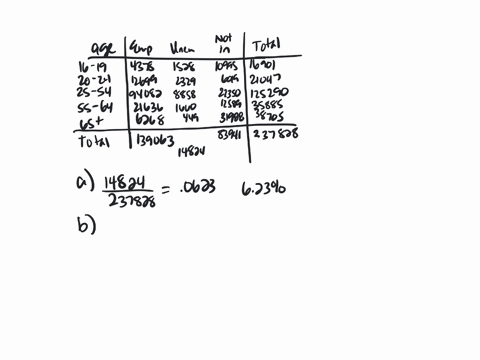 age Emp Unem Not in Total
16-19 4378 1528 10995 16901
20-24 12699 2329 6019 21047
25-54 94082 8858 22350 125290
55-64 21636 1660 12589 35885
65+ 6268 449 31988 38705
Total 139063 14824 83941 237828
a) 14824
237828 = .0623 6.23%
b)